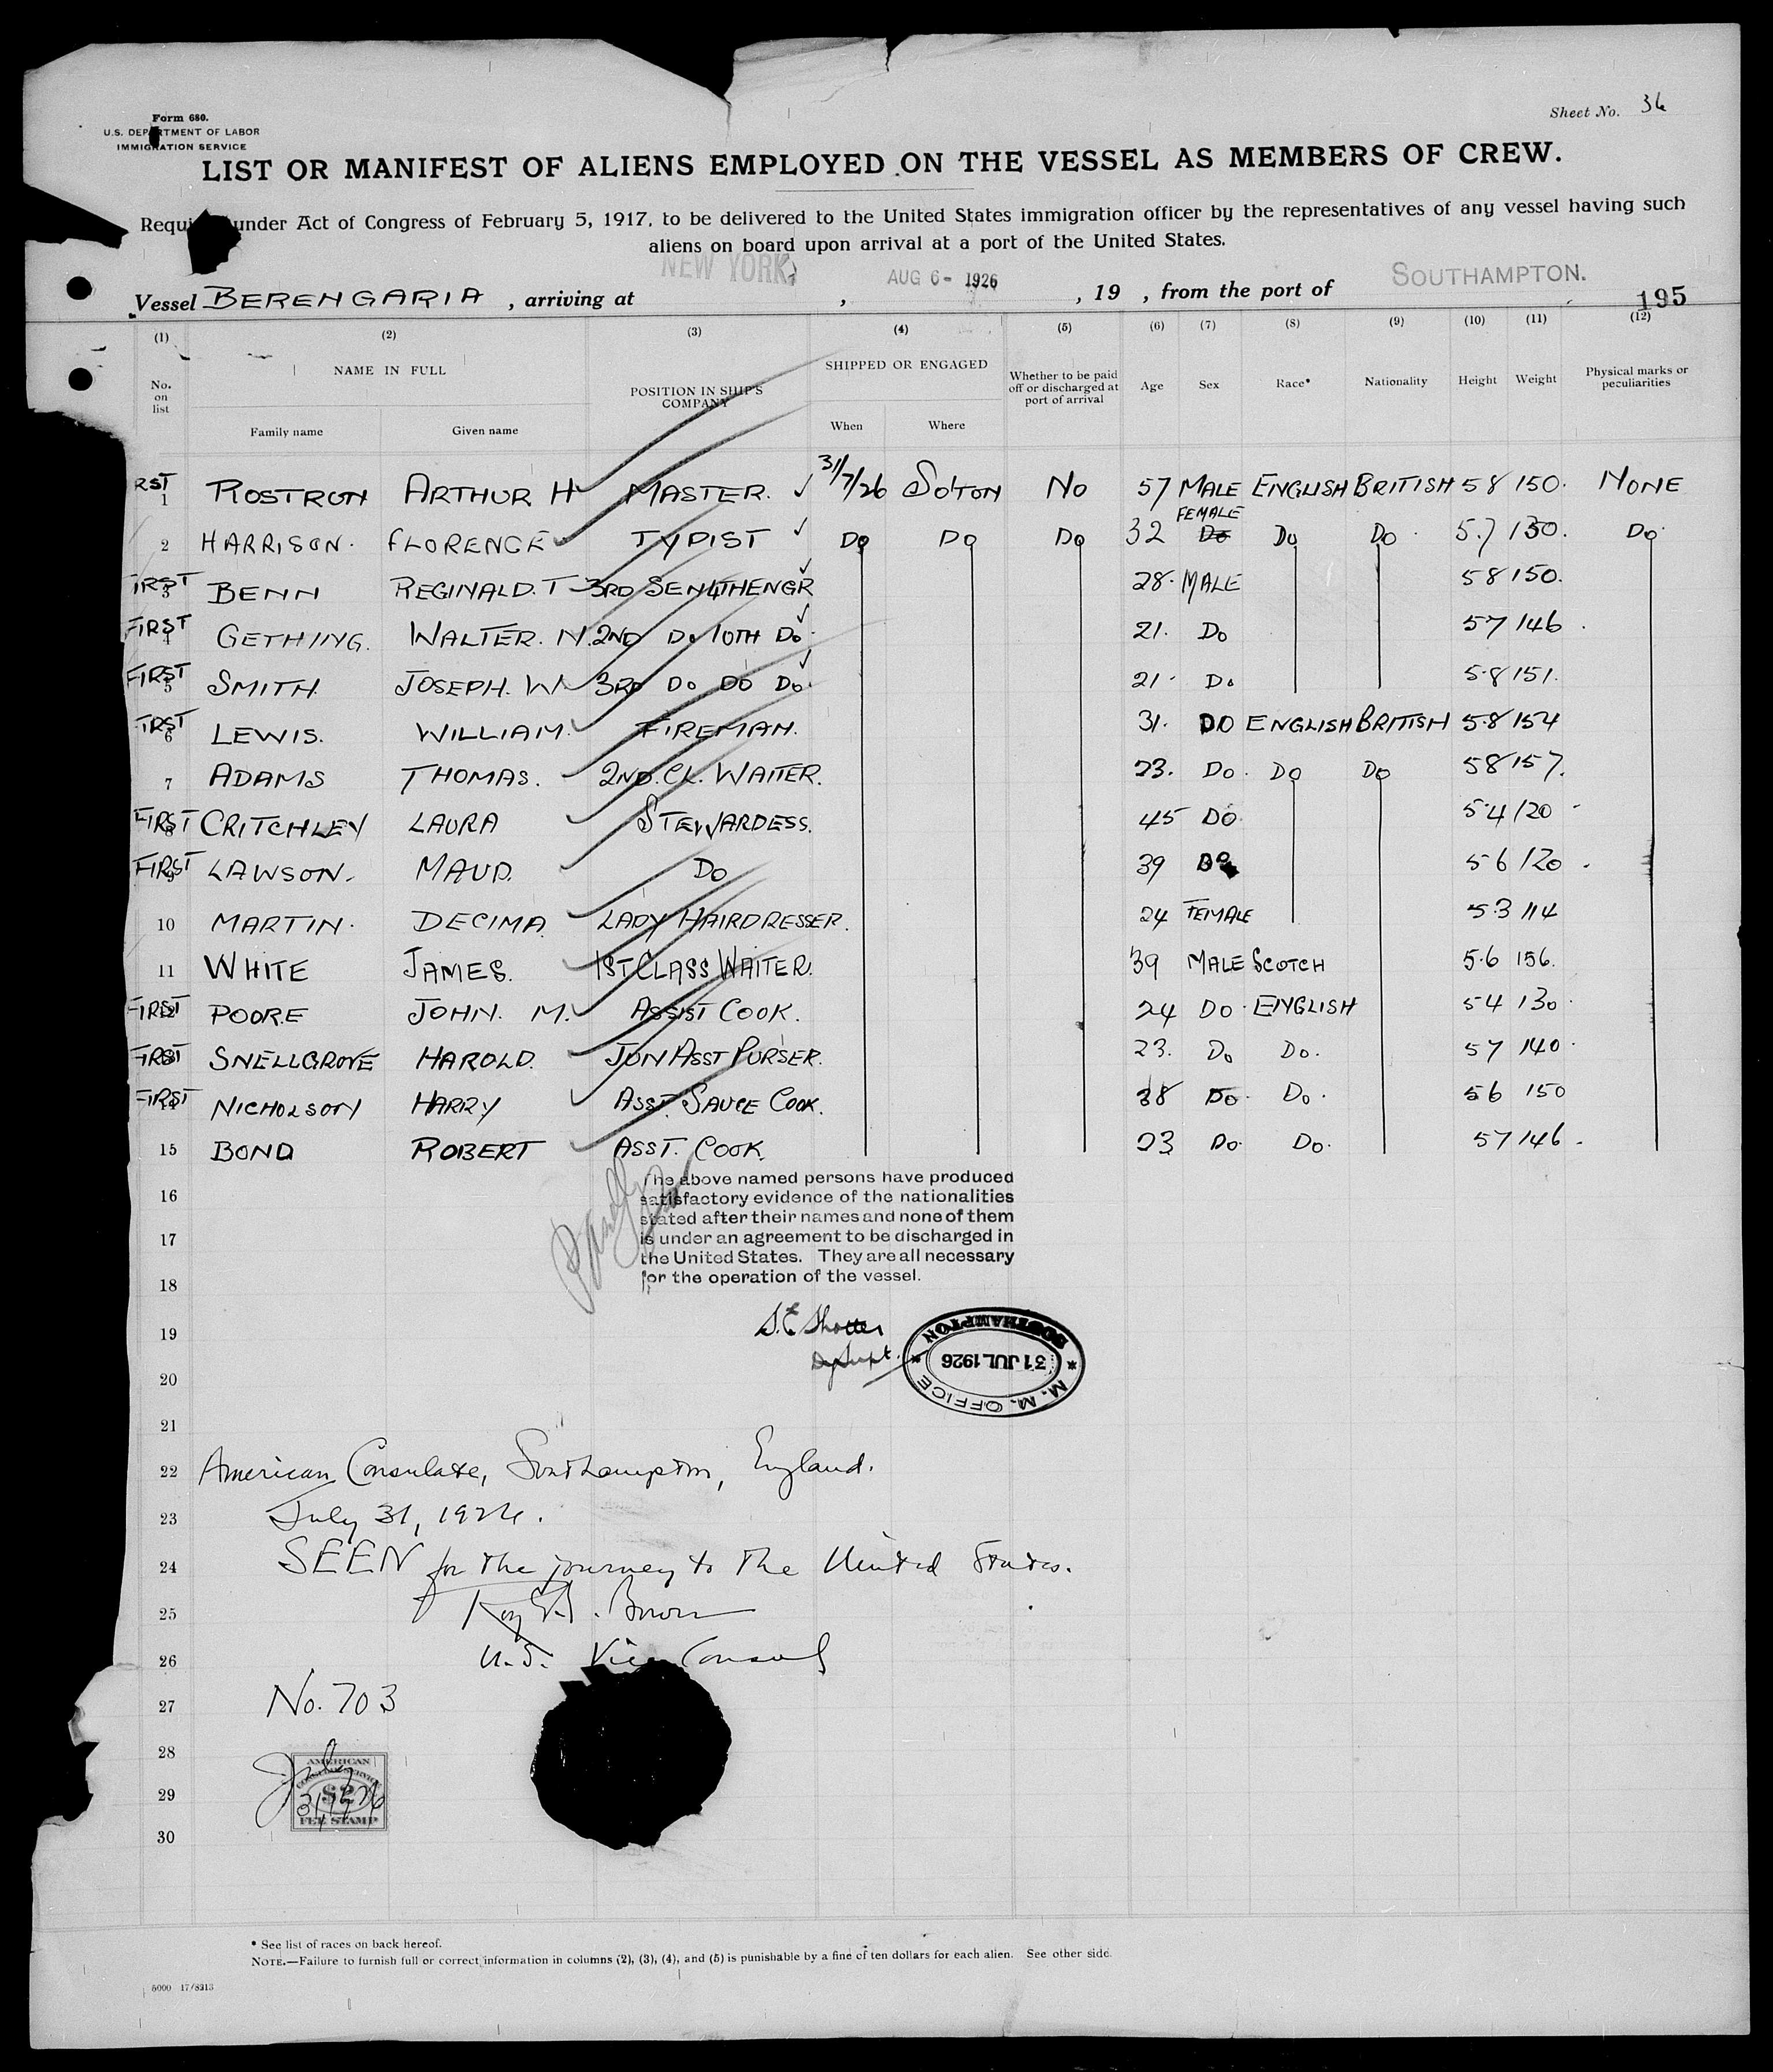 Form 680.
U.S. DEPARTMENT OF LABOR
IMMIGRATION SERVICE
Sheet No. 36
LIST OR MANIFEST OF ALIENS EMPLOYED ON THE VESSEL AS MEMBERS OF CREW.
Requi under Act of Congress of February 5, 1917, to be delivered to the United States immigration officer by the representatives of any vessel having such
aliens on board upon arrival at a port of the United States.
Vessel BERENGARIA , arriving at NEW YORK, , AUG 6- 1926 , 19 , from the port of SOUTHAMPTON.
195
(1) (2) (3) (4) (5) (6) (7) (8) (9) (10) (11) (12)
No. on list NAME IN FULL POSITION IN SHIP'S COMPANY SHIPPED OR ENGAGED Whether to be paid off or discharged at port of arrival Age Sex Race* Nationality Height Weight Physical marks or peculiarities
Family name Given name When Where
RST 1 ROSTRON ARTHUR H MASTER. 31/7/26 SO'TON NO 57 MALE ENGLISH BRITISH 58 150. NONE
2 HARRISON. FLORENCE TYPIST DO DO DO 32 FEMALE DO DO DO. 5.7 130. DO.
FIRST 3 BENN REGINALD. T 3RD SEN 4TH ENGR 28. MALE 58 150.
FIRST 4 GETHING. WALTER. N. 2ND DO 10TH DO. 21. DO 57 146.
FIRST 5 SMITH JOSEPH. W 3RD DO DO DO. 21. DO 5.8 151.
FIRST 6 LEWIS. WILLIAM. FIREMAN. 31. DO ENGLISH BRITISH 5.8 154
7 ADAMS THOMAS. 2ND. CL. WAITER. 23. DO. DO DO 58 157.
FIRST 8 CRITCHLEY LAURA STEWARDESS. 45 DO. 5.4 120
FIRST 9 LAWSON. MAUD. DO 39 DO 5.6 120.
10 MARTIN. DECIMA LADY HAIRDRESSER. 24 FEMALE 5.3 114
11 WHITE JAMES. 1ST CLASS WAITER. 39 MALE SCOTCH 5.6 156.
FIRST 12 POORE JOHN. M. ASSIST COOK. 24 DO. ENGLISH 54 130.
FIRST 13 SNELLGROVE HAROLD. JUN ASST PURSER. 23. DO DO. 57 140.
FIRST 14 NICHOLSON HARRY ASST. SAUCE COOK. 38 DO. DO. 56 150
15 BOND ROBERT ASST. COOK. 23 DO. DO. 57 146.
The above named persons have produced
16 satisfactory evidence of the nationalities
stated after their names and none of them
17 is under an agreement to be discharged in
the United States. They are all necessary
18 for the operation of the vessel.
19 S.E Shotter
Dy Supt.
M. M. OFFICE
31 JUL 1926
SOUTHAMPTON
20
21
22 American Consulate, Southampton, England.
23 July 31, 1926.
24 SEEN for the journey to the United States.
25 Brown
26 U.S. Vice Consul
27 No. 703
28 AMERICAN
CONSULAR SERVICE
29 $2
FEE STAMP
July 31, 1926
30
* See list of races on back hereof.
NOTE.—Failure to furnish full or correct information in columns (2), (3), (4), and (5) is punishable by a fine of ten dollars for each alien. See other side.
5000 17/8213